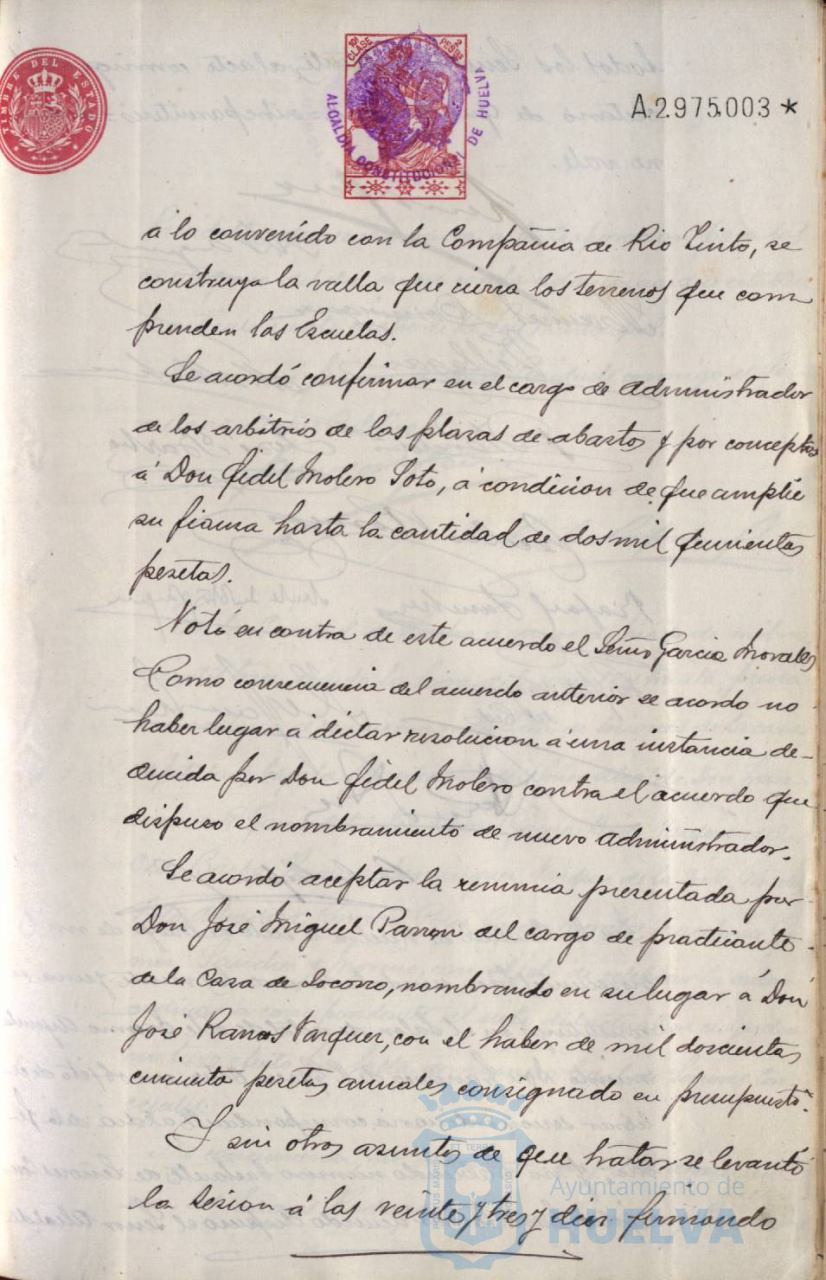 TIMBRE DEL ESTADO
10ª CLASE 2 PESETAS
ALCALDIA CONSTITUCIONAL DE HUELVA
A.2.975.003 *
á lo convenido con la Compañia de Rio Tinto, se
construya la valla que cierra los terrenos que com
prenden las Escuelas.
Se acordó confirmar en el cargo de Administrador
de los arbitrios de las plazas de abastos y por conceptos
á Don Fidel Molero Soto, á condicion de que amplie
su fianza hasta la cantidad de dos mil quinientas
pesetas.
Votó en contra de este acuerdo el Señor Garcia Morales
Como consecuencia del acuerdo anterior se acordo no
haber lugar á dictar resolucion á una instancia de-
ducida por Don Fidel Molero contra el acuerdo que
dispuso el nombramiento de nuevo Administrador.
Se acordó aceptar la renuncia presentada por
Don José Miguel del cargo de practicante
de la Casa de Socorro, nombrando en su lugar á Don
José Ramos Vazquez, con el haber de mil doscientas
cincuenta pesetas anuales consignado en presupuesto.
Y sin otros asuntos de que tratar se levantó
la sesion á las veinte y tres y diez firmando
Ayuntamiento de
HUELVA